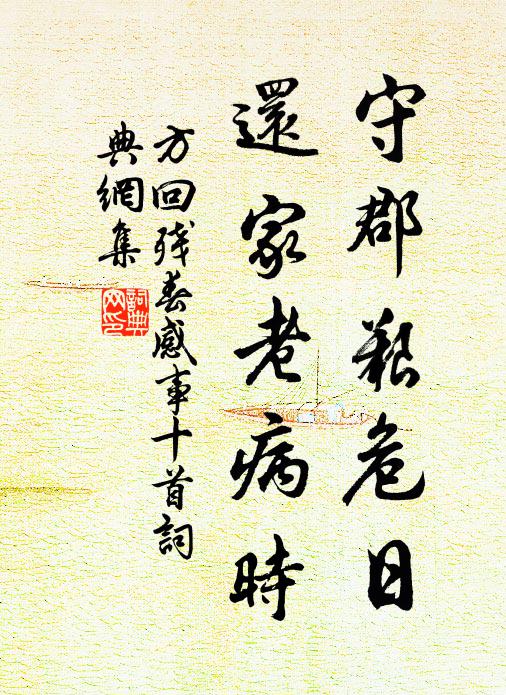 守郡艱危日
還家老病時
方回殘春感事十首詞
典網集
詞典網印